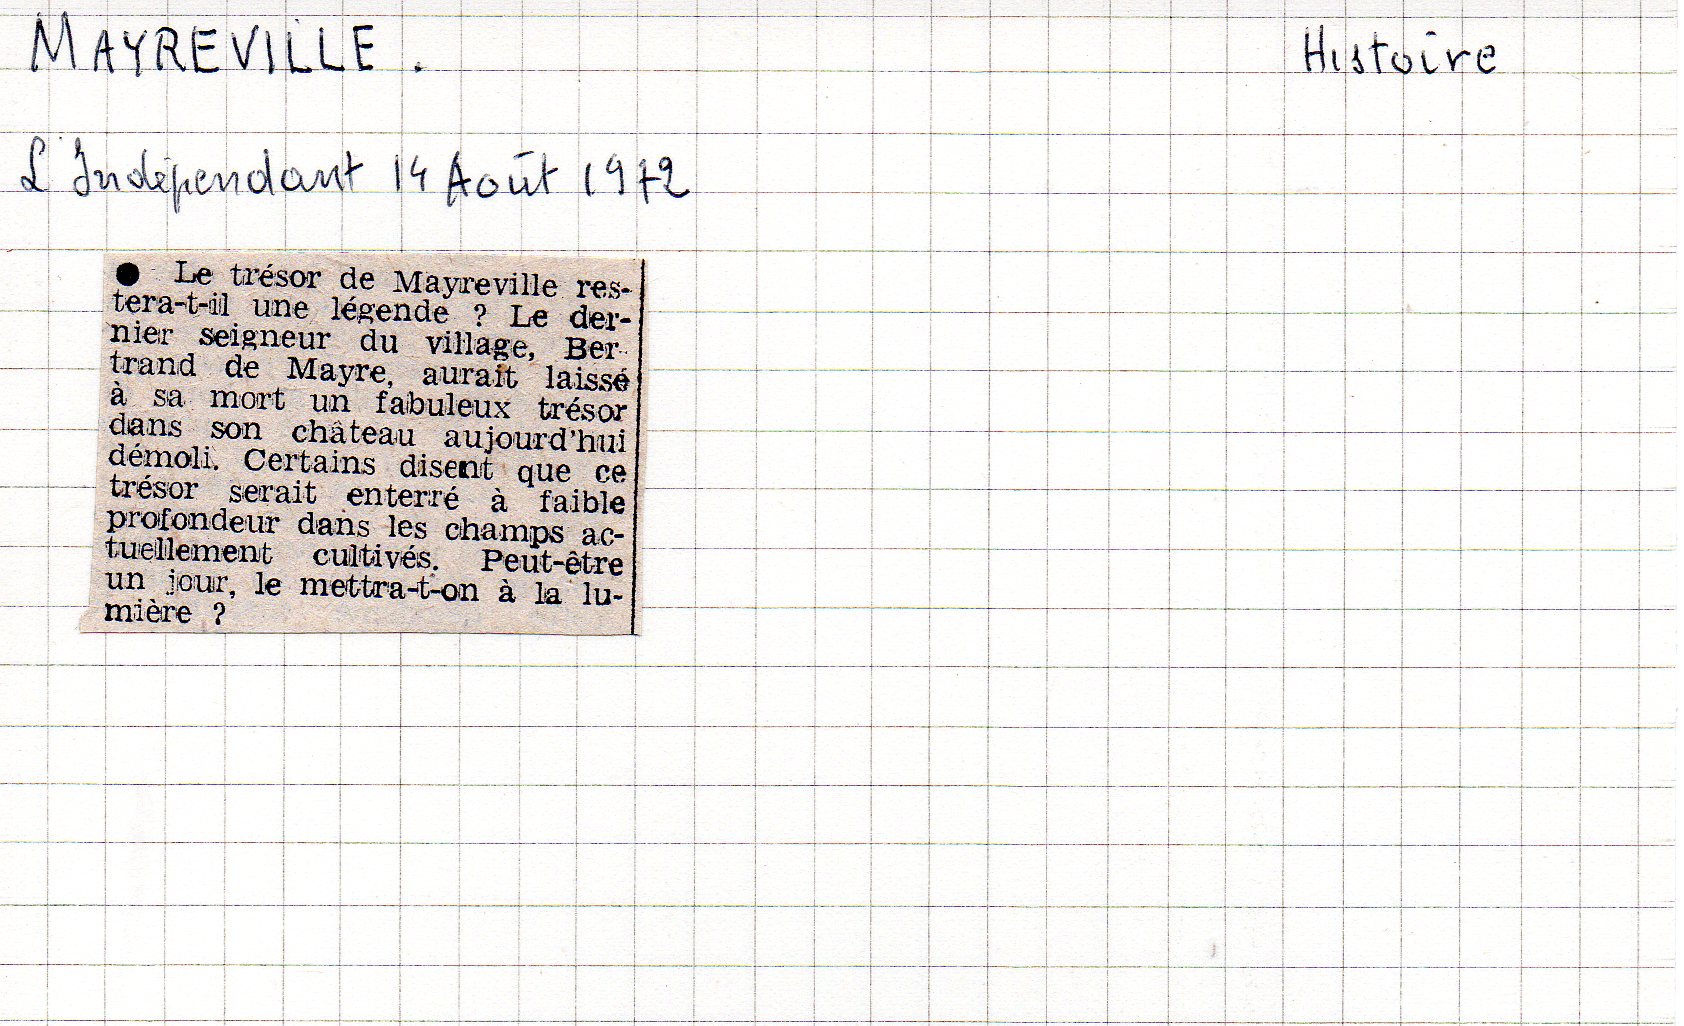 MAYREVILLE.
Histoire
L'Indépendant 14 Août 1972
● Le trésor de Mayreville res-
tera-t-il une légende ? Le der-
nier seigneur du village, Ber-
trand de Mayre, aurait laissé
à sa mort un fabuleux trésor
dans son château aujourd'hui
démoli. Certains disent que ce
trésor serait enterré à faible
profondeur dans les champs ac-
tuellement cultivés. Peut-être
un jour, le mettra-t-on à la lu-
mière ?